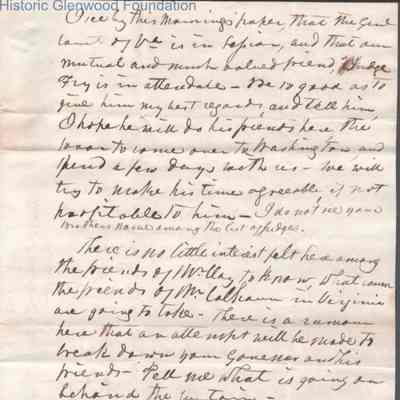 Historic Glenwood Foundation
I see by this Mornings paper, that the Genl
Court of Va is in Session, and that our
mutual and much valued friend, Judge
Fry is in attendance - Be so good as to
give him my best regards, and tell him,
I hope he will do his friends here the
favor to come over to Washington, and
spend a few days with us - We will
try to make his time agreeable if not
profitable to him - I do not see your
brothers name among the list of judges.
There is no little interest felt here among
the friends of Mr Clay, to know, what course
the friends of Mr Calhoun in Virginia
are going to take - There is a rumour
here that an attempt will be made to
break down your Governor and his
friends - Tell me what is going on
behind the curtain -